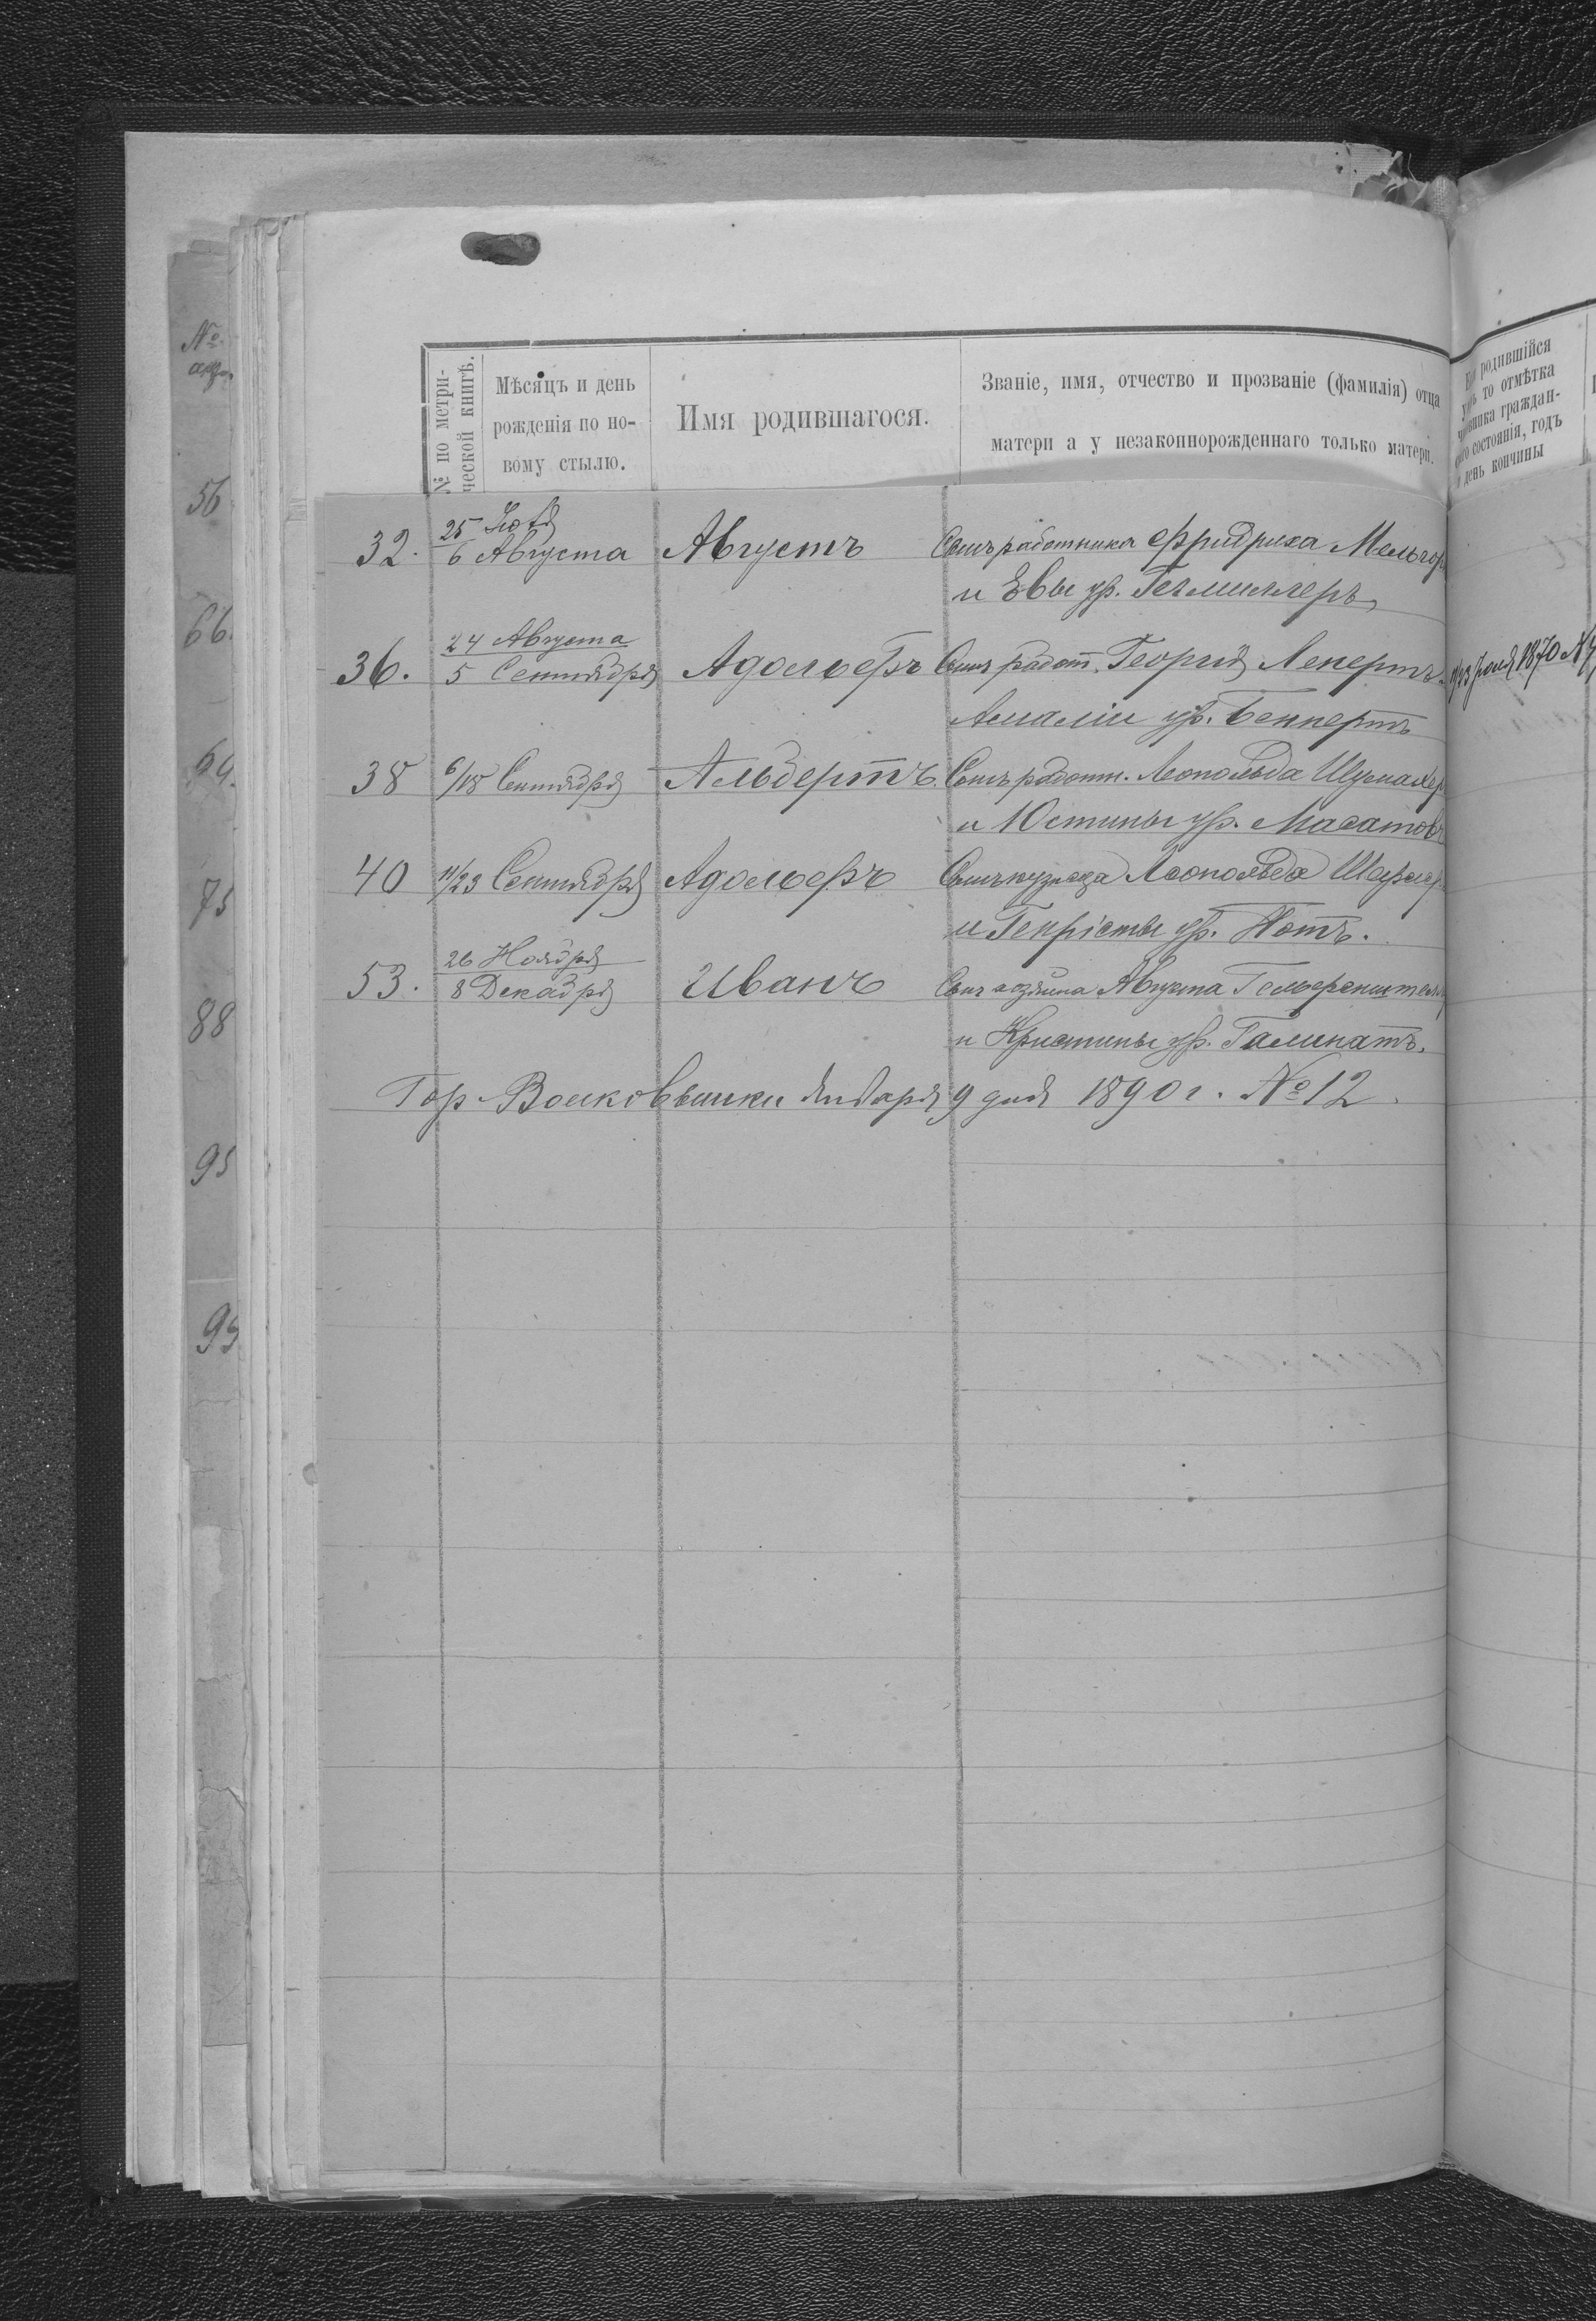 № по метри-
ческой книгѣ.
Мѣсяцъ и день
рожденія по но-
вому стылю.
Имя родившагося.
Званіе, имя, отчество и прозваніе (фамилія) отца
матери а у незаконнорожденнаго только матери.
родившійся
то отмѣтка
граждан-
состоянія, годъ
и день кончины
№
56
66.
69.
75
88
95
99
32.
25 Юля
6 Августа
Августъ
Сынъ работника Фридриха Мельхор
и Евы ур. Гезмиллеръ,
36.
24 Августа
5 Сентября
Адольфъ
Сынъ работ. Георгія Ленертъ
Амаліи ур. Беннертъ
1870
38
6/18 Сентября
Альбертъ.
Сынъ работн. Леопольда Шумахер
и Юстины ур. Масатов
40
11/23 Сентября
Адольфъ
Сынъ кузнеца Леопольда
и Генріеты ур. Нотъ.
53.
26 Ноября
8 Декабря
Иванъ
Сынъ хозяина Августа
и Кристины ур. Галинатъ.
Гор Волковышки Января 9 дня 1890 г. № 12.